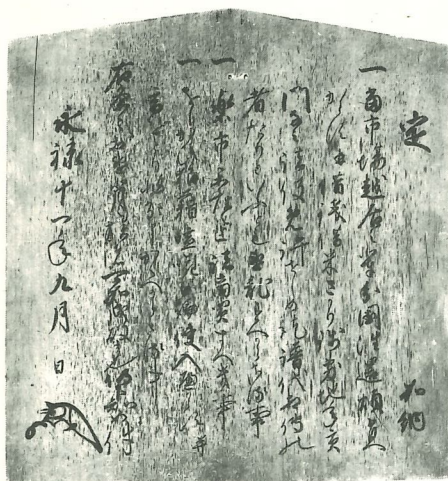 定
加納
一当市場越居之輩分国往還煩有
へからす并借銭借米さかり銭敷地年貢
門なみ諸役免許せしめ訖譜代相伝の
者たりといふとも違乱すへからさる事
一楽市楽座之上諸商買すへき事
一をしかひ狼藉喧嘩口論使入へからす并
宿をとり非分申かくへからさる事
右条々於違背之族者可加成敗者也仍下知如件
永禄十一年九月 日